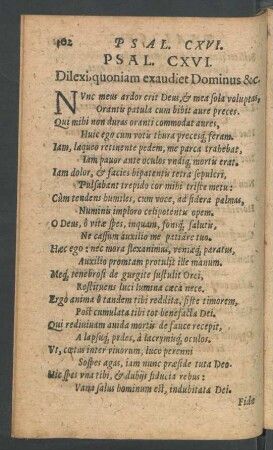 102 PSAL. CXVI.
PSAL. CXVI.
Dilexi, quoniam exaudiet Dominus &c.
NVnc meus ardor erit Deus, & mea sola voluptas,
Orantis patula cum bibit aure preces.
Qui mihi non duras oranti commodat aures,
Huic ego cum votis thura precesq, feram.
Iam, laqueo retinente pedem, me parca trahebat,
Iam pavor ante oculos vndiq, mortis erat.
Iam dolor, & facies bipatentis tetra sepulcri,
Pulsabant trepido cor mihi triste metu:
Cùm tendens humiles, cum voce, ad sidera palmas,
Numinis imploro celipotentis opem.
O Deus, ô vitæ spes, inquam, fonsq, salutis,
Ne cassum auxilio me patiare tuo.
Hæc ego: nec mora flexanimus, veniæq, paratus,
Auxilio promtam protulit ille manum.
Meq, tenebrosi de gurgite sustulit Orci,
Restituens luci lumina cæca nece.
Ergò anima ô tandem tibi reddita, siste timorem,
Post cumulata tibi tot benefacta Dei.
Qui rediuiuam auida mortis de fauce recepit,
A lapsuq, pedes, à lacrymisq, oculos.
Vt, cœtus inter viuorum, luce perenni
Sospes agas, iam nunc præside tuta Deo.
Hic spes vna tibi, & dubijs fiducia rebus:
Vana salus hominum est, indubitata Dei.
Fide